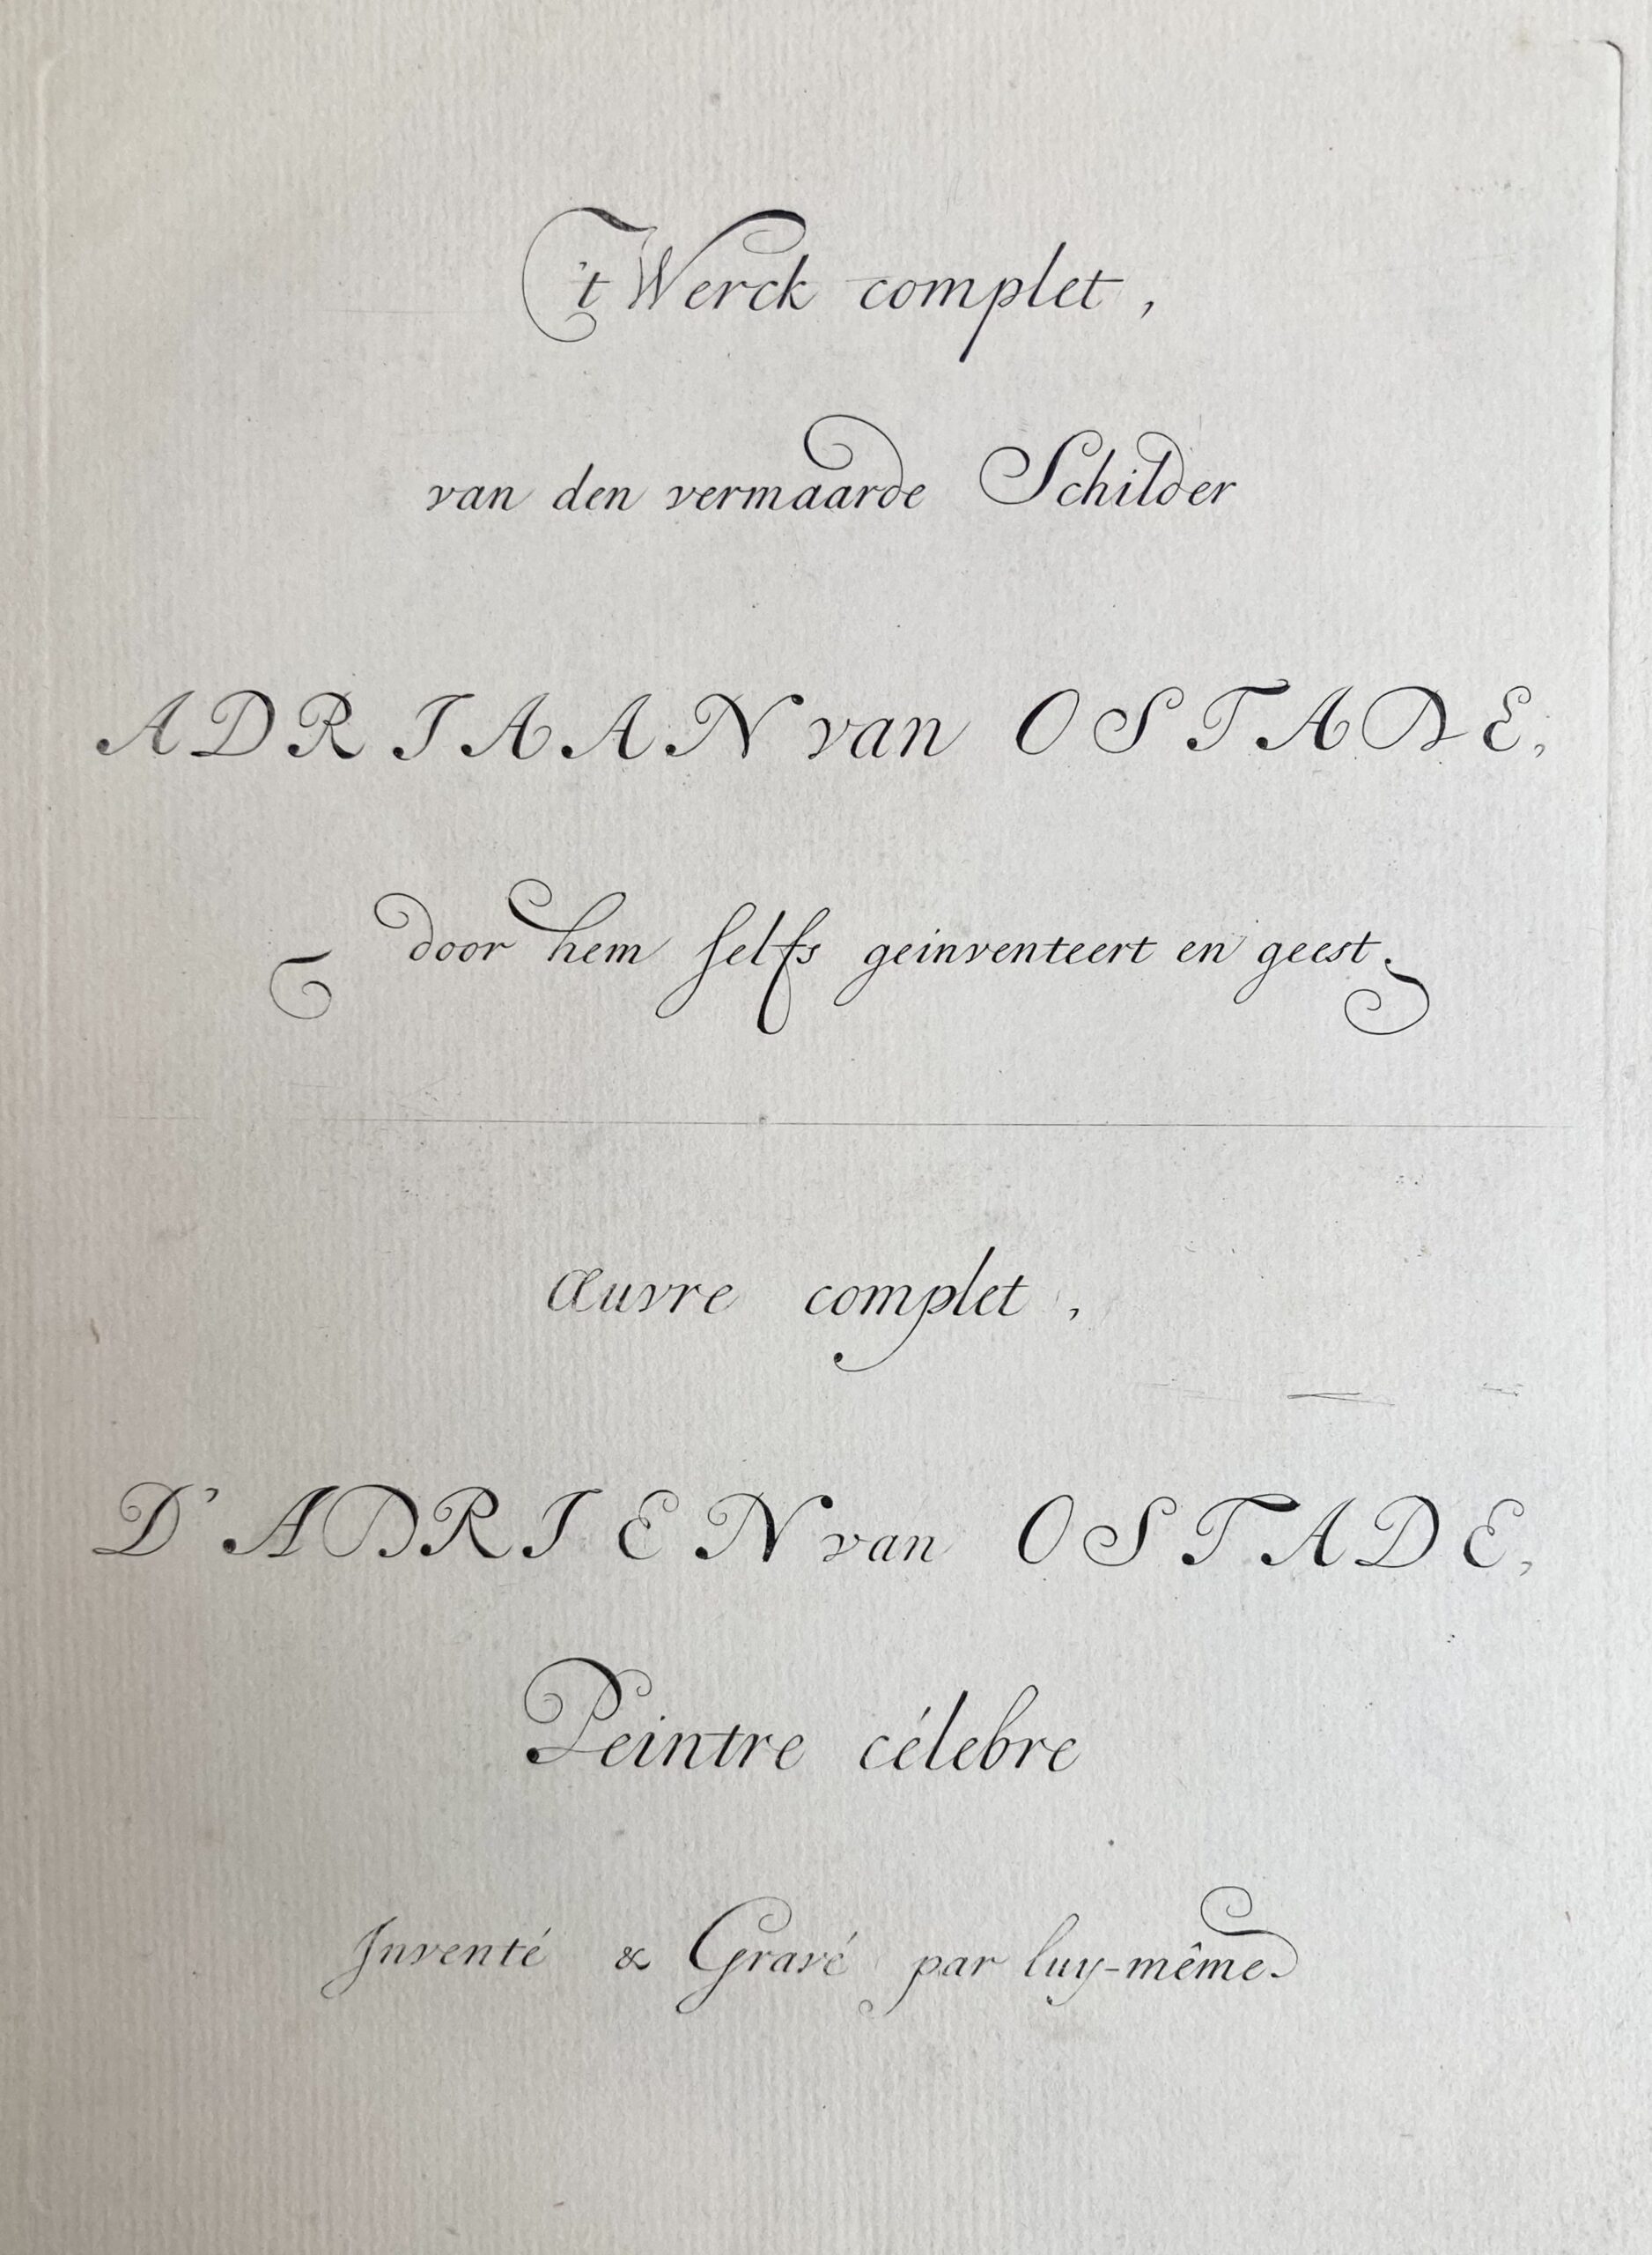 't Werck complet,
van den vermaarde Schilder
ADRIAAN van OSTADE,
door hem selfs geinventeert en geest.
Œuvre complet,
D'ADRIEN van OSTADE,
Peintre célebre
Inventé & Gravé par luy-même.